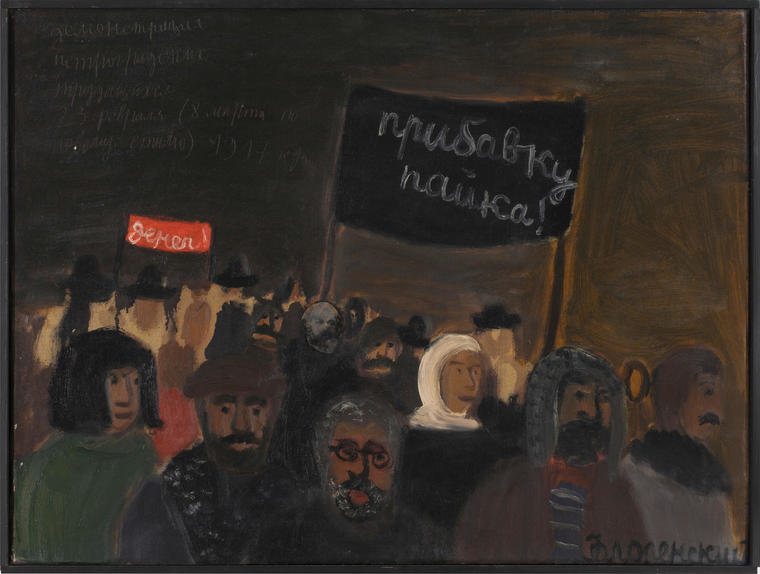 демонстрация
петроградских
трудящихся
23 февраля (8 марта по
новому стилю) 1917 года
прибавку
пайка!
денег!
Флоренский